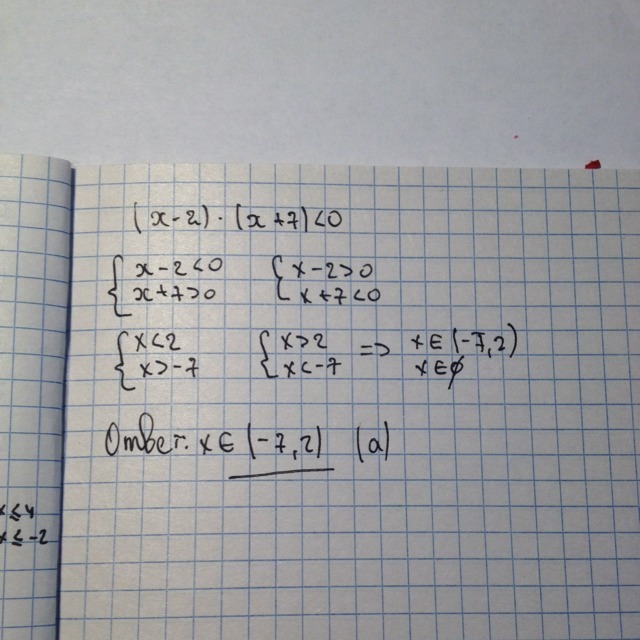 (x-2)·(x+7)<0
{ x-2<0 { x-2>0
x+7>0 x+7<0
{ x<2 { x>2 => x∈(-7,2)
x>-7 x<-7 x∈∅
Ответ: x∈(-7,2) (a)
x≤4
x≤-2